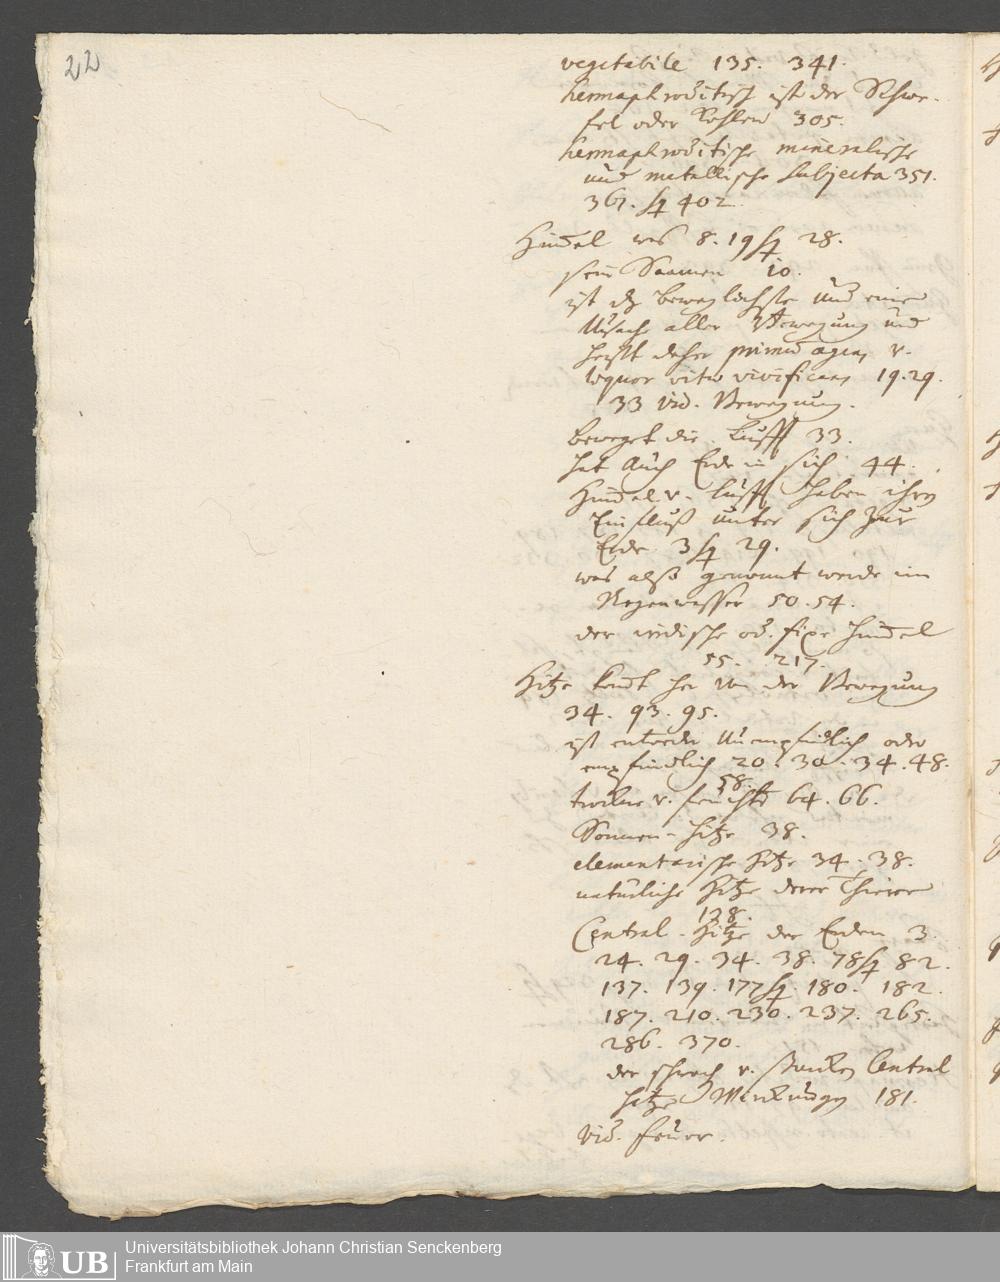 22
vegetabile 135. 341.
hermaphroditisch ist der Schwe-
fel oder Kohlen 305.
hermaphroditische mineralische
und metallische subjecta 351.
361. sq 402.
Himel was 8. 19 sq 28.
sein Saamen 10.
ist dz beweglichste und eine
Ursache aller Bewegung und
heist daher primū agens v.
liquor vitæ vivificans 19. 29.
33 vid. Bewegung.
beweget die Lufft 33.
hat auch Erde in sich 44.
Himel v. Lufft haben ihren
Einfluß unter sich zur
Erde 3 sq 29.
was alß genennt werde im
Regenwasser 50. 54.
der irrdische od. fixe Himel
55. 217.
Hitze komt her von der Bewegung
34. 93. 95.
ist entweder unempfindlich oder
empfindlich 20. 30. 34. 48.
58.
trockne v. feuchte 64. 66.
Sonnen-Hitze 38.
elementarische Hitze 34. 38.
natürliche Hitze derer Thiere
128.
Central-Hitze der Erden 3.
24. 29. 34. 38. 78 sq 82.
137. 139. 177 sq. 180. 182.
187. 210. 230. 237. 265.
286. 370.
der schwach v. starken Central
Hitze Wirkungen 181.
vid. Feuer.
UB
Universitätsbibliothek Johann Christian Senckenberg
Frankfurt am Main